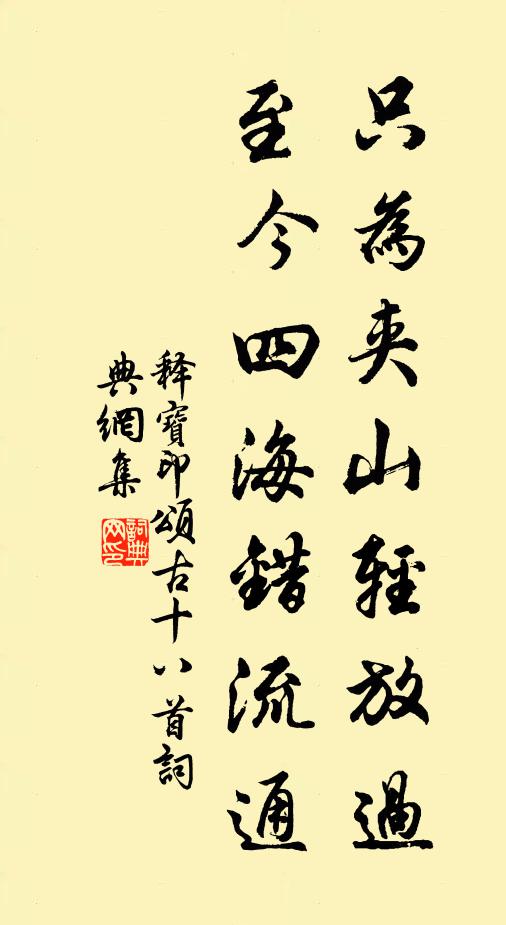 只為夾山輕放過
至今四海錯流通
释寶印頌古十八首詞
典網集
詞典
网印